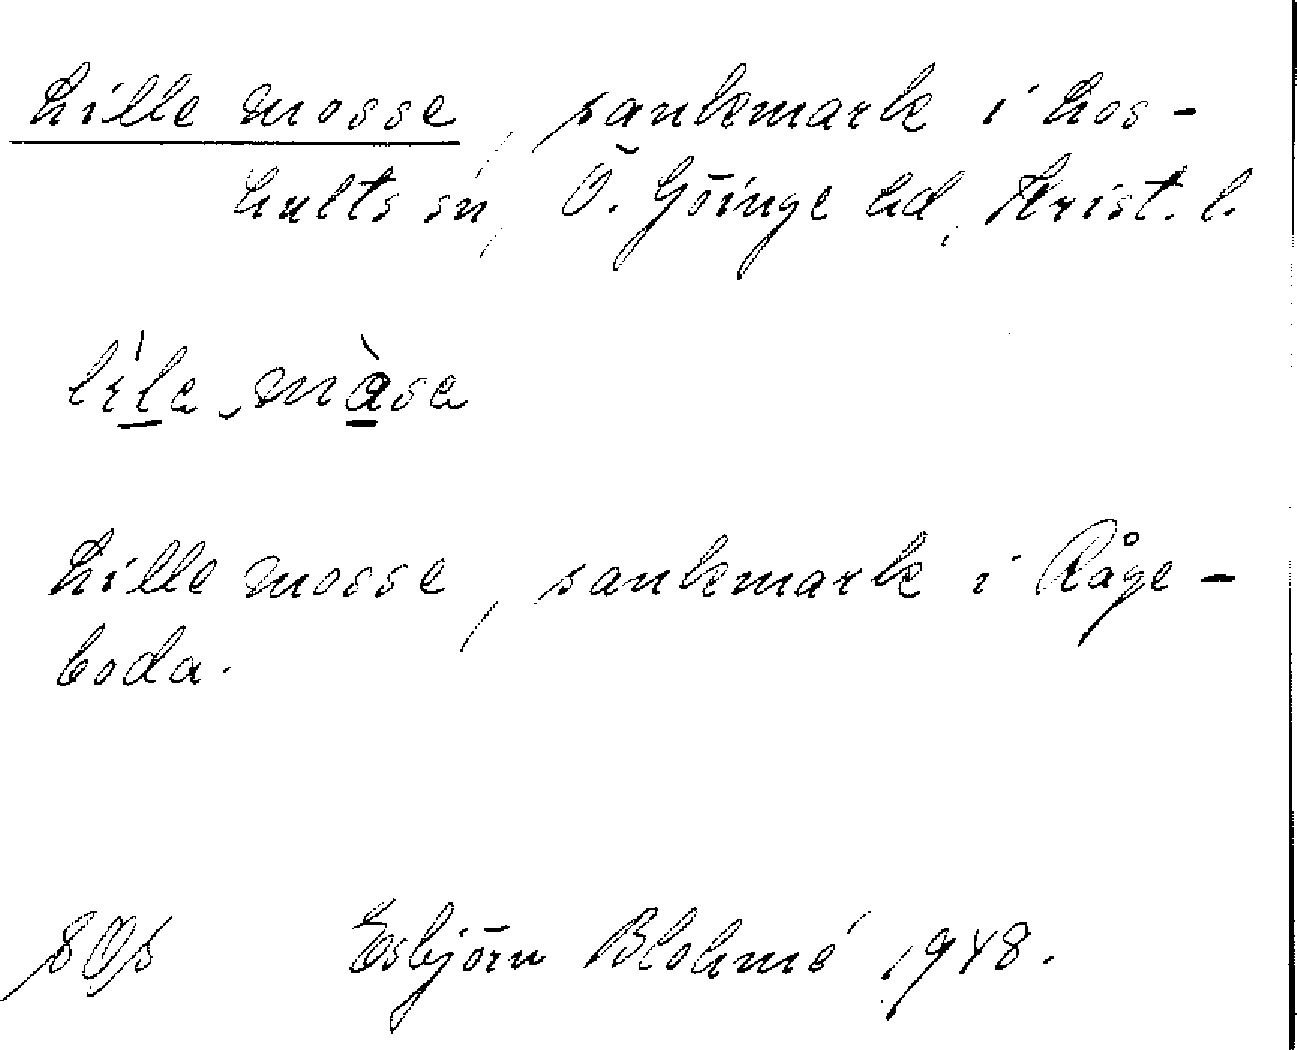 Lille mosse, sankmark i Los-
hults sn, Ö. Göinge hd, Krist. l.
Lille mosse, sankmark i Råge-
boda.
Esbjörn Blohmé 1948.